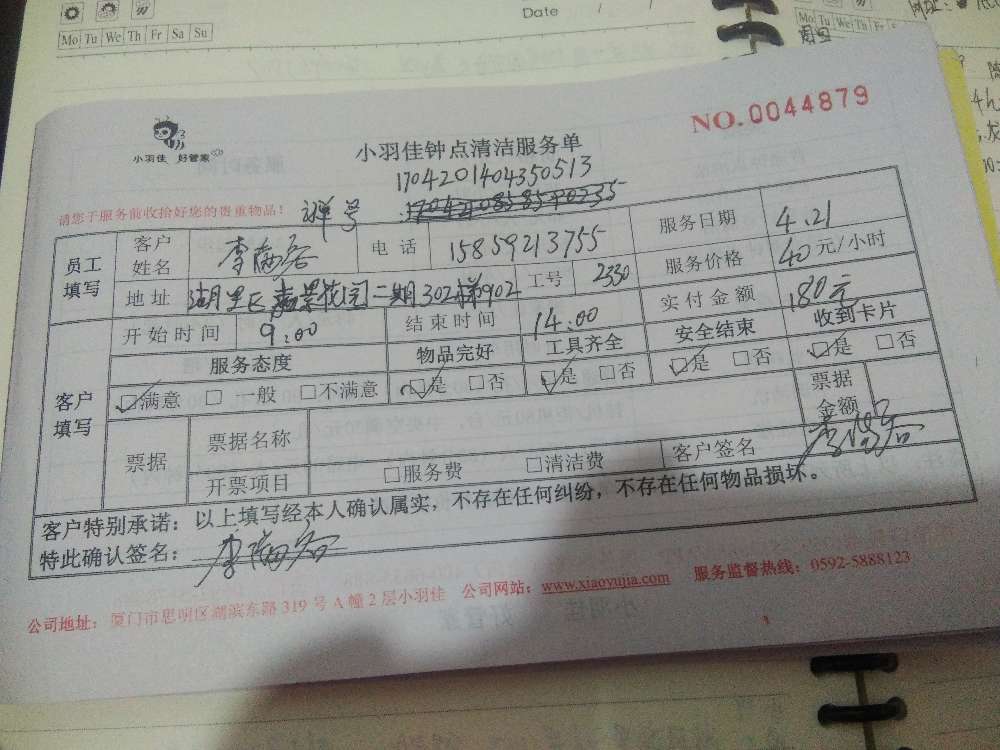 Date / /
Mo Tu We Th Fr Sa Su
小羽佳 好管家
小羽佳钟点清洁服务单
NO.0044879
1704201404350513
请您于服务前收拾好您的贵重物品!
单号
员工填写
客户姓名
电话 15859213755
服务日期 4.21
地址 湖里区嘉景花园二期302梯902
工号 2330
服务价格 40元/小时
客户填写
开始时间 9:00
结束时间 14:00
实付金额 180元
服务态度 物品完好 工具齐全 安全结束 收到卡片
□满意 □一般 □不满意 □是 □否 □是 □否 □是 □否 □是 □否
票据
票据名称
票据金额
开票项目 □服务费 □清洁费
客户签名
客户特别承诺:以上填写经本人确认属实,不存在任何纠纷,不存在任何物品损坏。
特此确认签名:
公司地址:厦门市思明区湖滨东路319号A幢2层小羽佳 公司网站:www.xiaoyujia.com 服务监督热线:0592-5888123